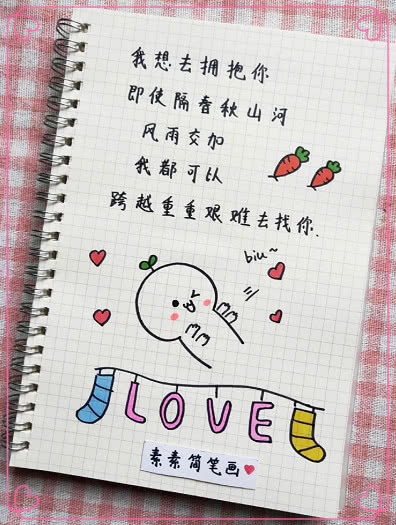 我想去拥抱你
即使隔春秋山河
风雨交加
我都可以
跨越重重艰难去找你.
biu~
LOVE
素素简笔画